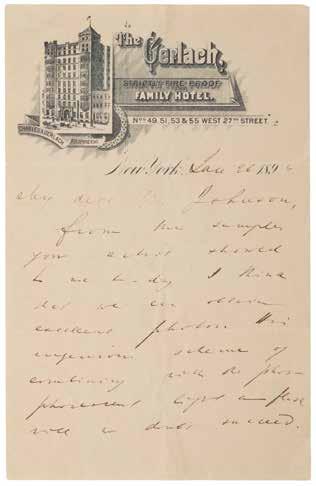 The Gerlach,
STRICTLY FIRE-PROOF
FAMILY HOTEL.
CHARLES A. GERLACH, PROPRIETOR
Nos 49, 51, 53 & 55 WEST 27TH STREET.
New York, Jan 20 189
My dear Mr Johnson,
from the samples
your artist showed
to me to-day I think
that we can obtain
excellent photos. His
ingenious scheme of
combining with the phos-
phorescent light a flash
will no doubt succeed.